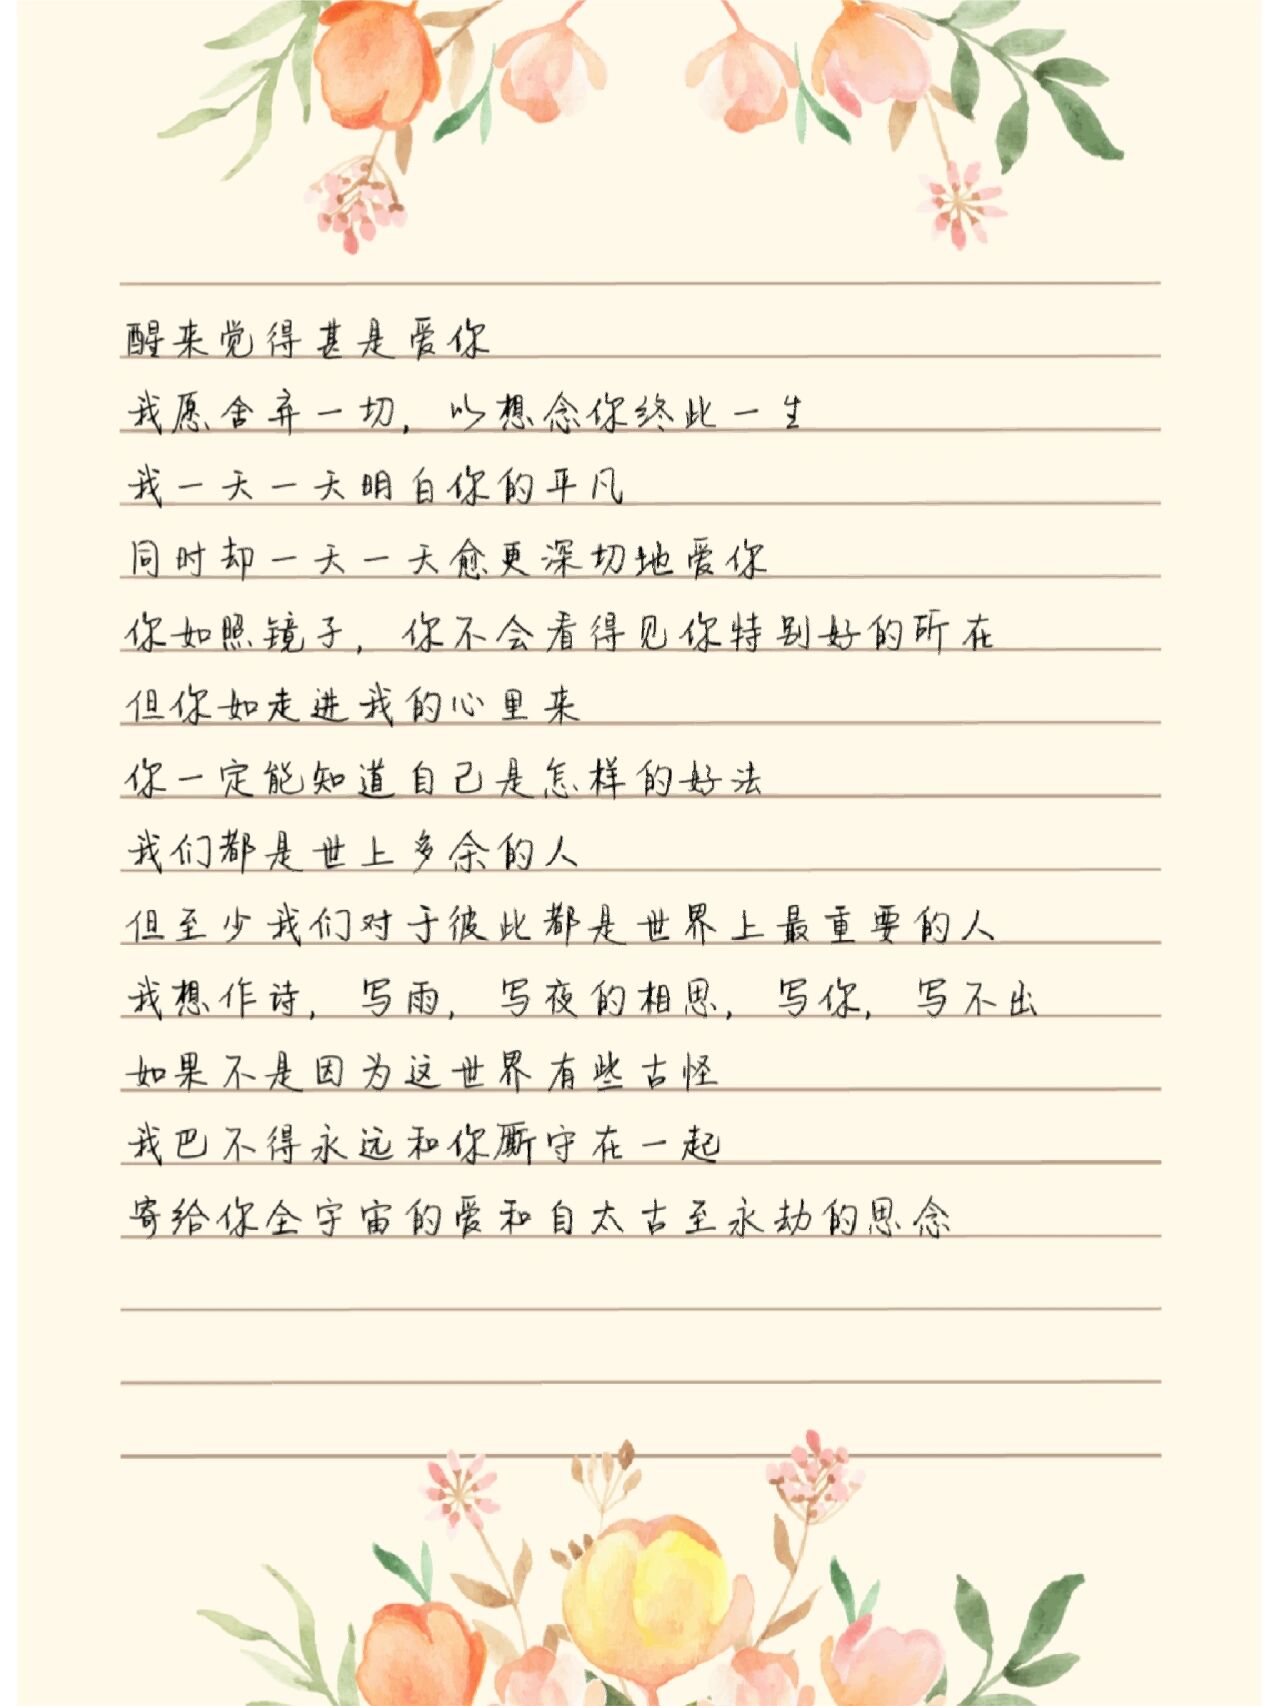 醒来觉得甚是爱你
我愿舍弃一切，以想念你终此一生
我一天一天明白你的平凡
同时却一天一天愈更深切地爱你
你如照镜子，你不会看得见你特别好的所在
但你如走进我的心里来
你一定能知道自己是怎样的好法
我们都是世上多余的人
但至少我们对于彼此都是世界上最重要的人
我想作诗，写雨，写夜的相思，写你，写不出
如果不是因为这世界有些古怪
我巴不得永远和你厮守在一起
寄给你全宇宙的爱和自太古至永劫的思念